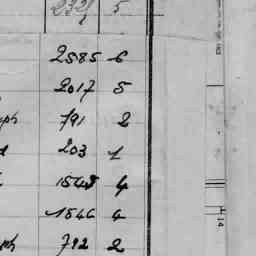 2321 5
2585 6
2017 5
ph 791 2
203 1
1548 4
1546 4
ph 792 2